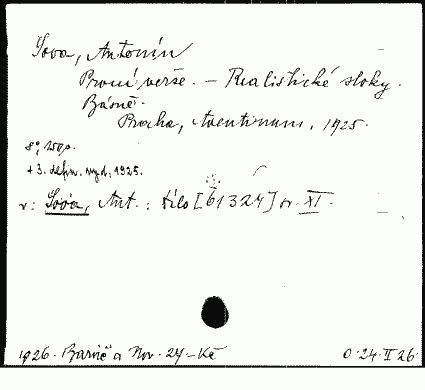 Sova, Antonín
První verše. – Realistické sloky.
Básně.
Praha, Aventinum, 1925.
8°, 150p.
+ 3. defin. vyd. 1925.
v: Sova, Ant.: Dílo [61324] sv. XI.
1926. a Nov. 24 – Kč
0.24.II 26